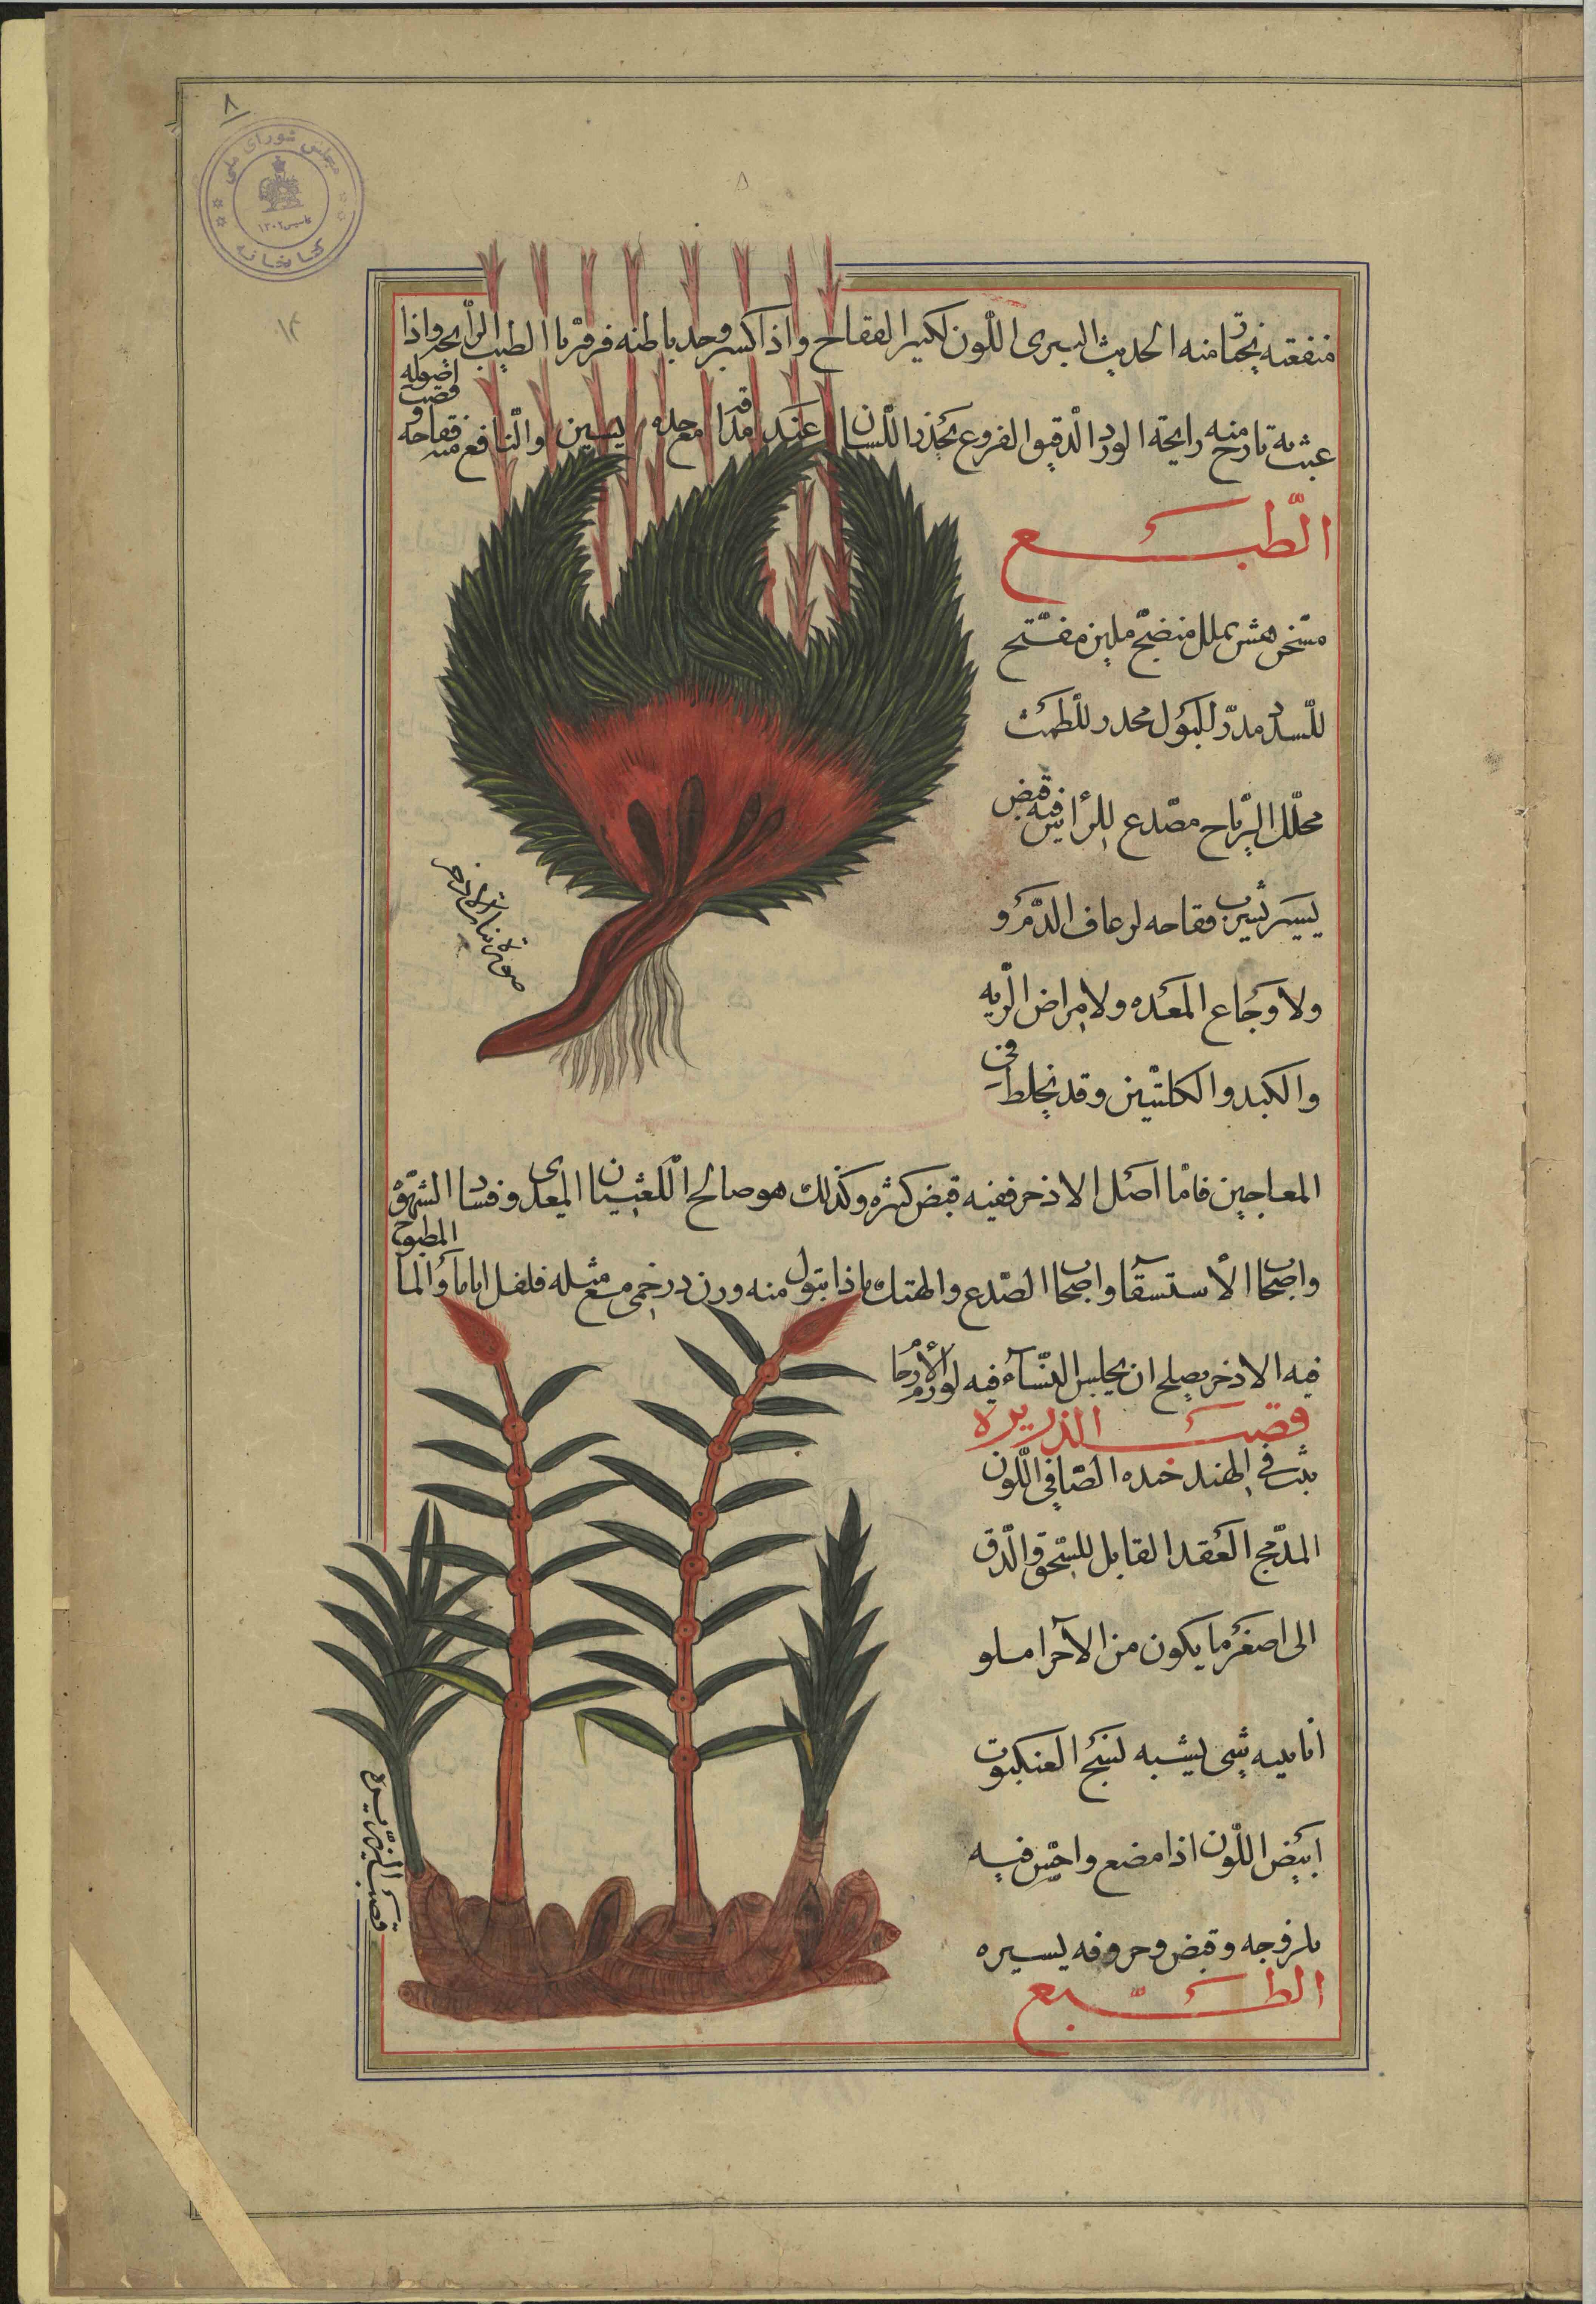 ٨
مجلس شورای ملی
تاسیس ١٣٠٢
کتابخانه
٨
١٤
منفعته منه الحديث اللون لكثير الفقاح واذا كسر وجد باطنه الطيب الرائحه واذا
منه رايحة الورد الدقيق الفروع يحذر اللسان عند مع حده يسير والنافع منه فقاحه وقصبه اصوله
الطبع
مسخن منضج ملين مفتح
للسدد مدر للبول محدر للطمث
محلل الرياح مصدع للراس فيه قبض
يسير يشرب فقاحه لرعاف الدم و
ولاوجاع المعده ولامراض الريه
والكبد والكلتين وقد يخلط فى
المعاجين فاما اصل الاذخر ففيه قبض كثره وكذلك هو صالح اللغثيان المعدى وفساد الشهوة
واصحاب الاستسقا واصحاب الصدع والهتك اذا منه وزن درخمى مع مثله فلفل اياما والماء المطبوح
فيه الاذخر يصلح ان يجلس النساء فيه لورم الارحام
قصب الذريره
ينبت فى الهند جيده الصافى اللون
المدمج العقد القابل للسحق والدق
الى اصغر ما يكون من الاجزا مملو
انابيبه شى يشبه نسج العنكبوت
ابيض اللون اذا مضغ واحس فيه
بلزوجه وقبض وحروفه يسيره
الطبع
صورة نبات الاذخر
قصب الذريره